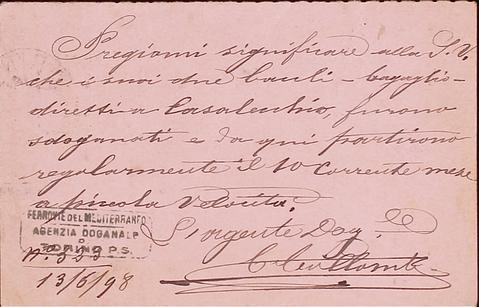 Pregiomi significare alla S. V.
che i suoi due bauli - bagaglio -
diretti a Casalecchio, furono
sdoganati e da qui partirono
regolarmente il 10 corrente mese
a piccola velocità.
L'Agente Dog.le
FERROVIE DEL MEDITERRANEO
AGENZIA DOGANALE
TORINO P.S.
N°. 353
13/6/98